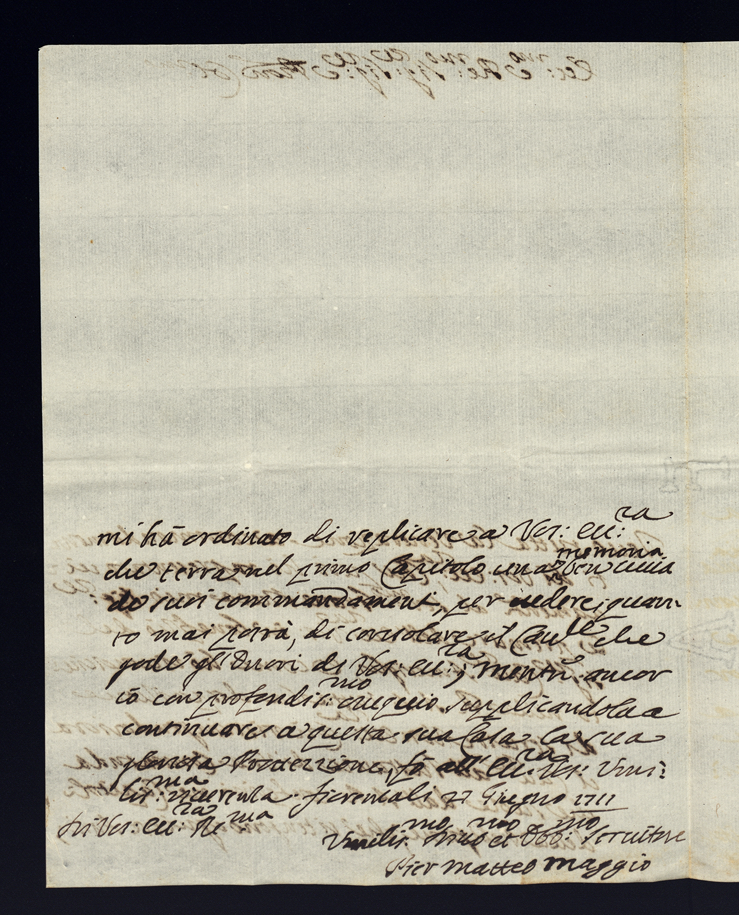 mi hà ordinato di replicare a Vos: ecc: za
che terrà nel primo Capitolo una memoria ben viva
de suoi commandamenti, per vedere, quan-
to mai potrà, di consolare il Cau.re che
gode gl'onori di Vos: ecc: za; mentr' ancor
io con profondis: mo ossequio supplicandola a
continuare a questa sua Casa la sua
Protezzione, fò all' ecc: za Vos: Umi:
lis: ma riverenza. 27 Giugno 1711
Di Vos: ecc: za Re ma
Umilis: mo Dmo et Obb: mo Servitore
Pier Matteo Maggio